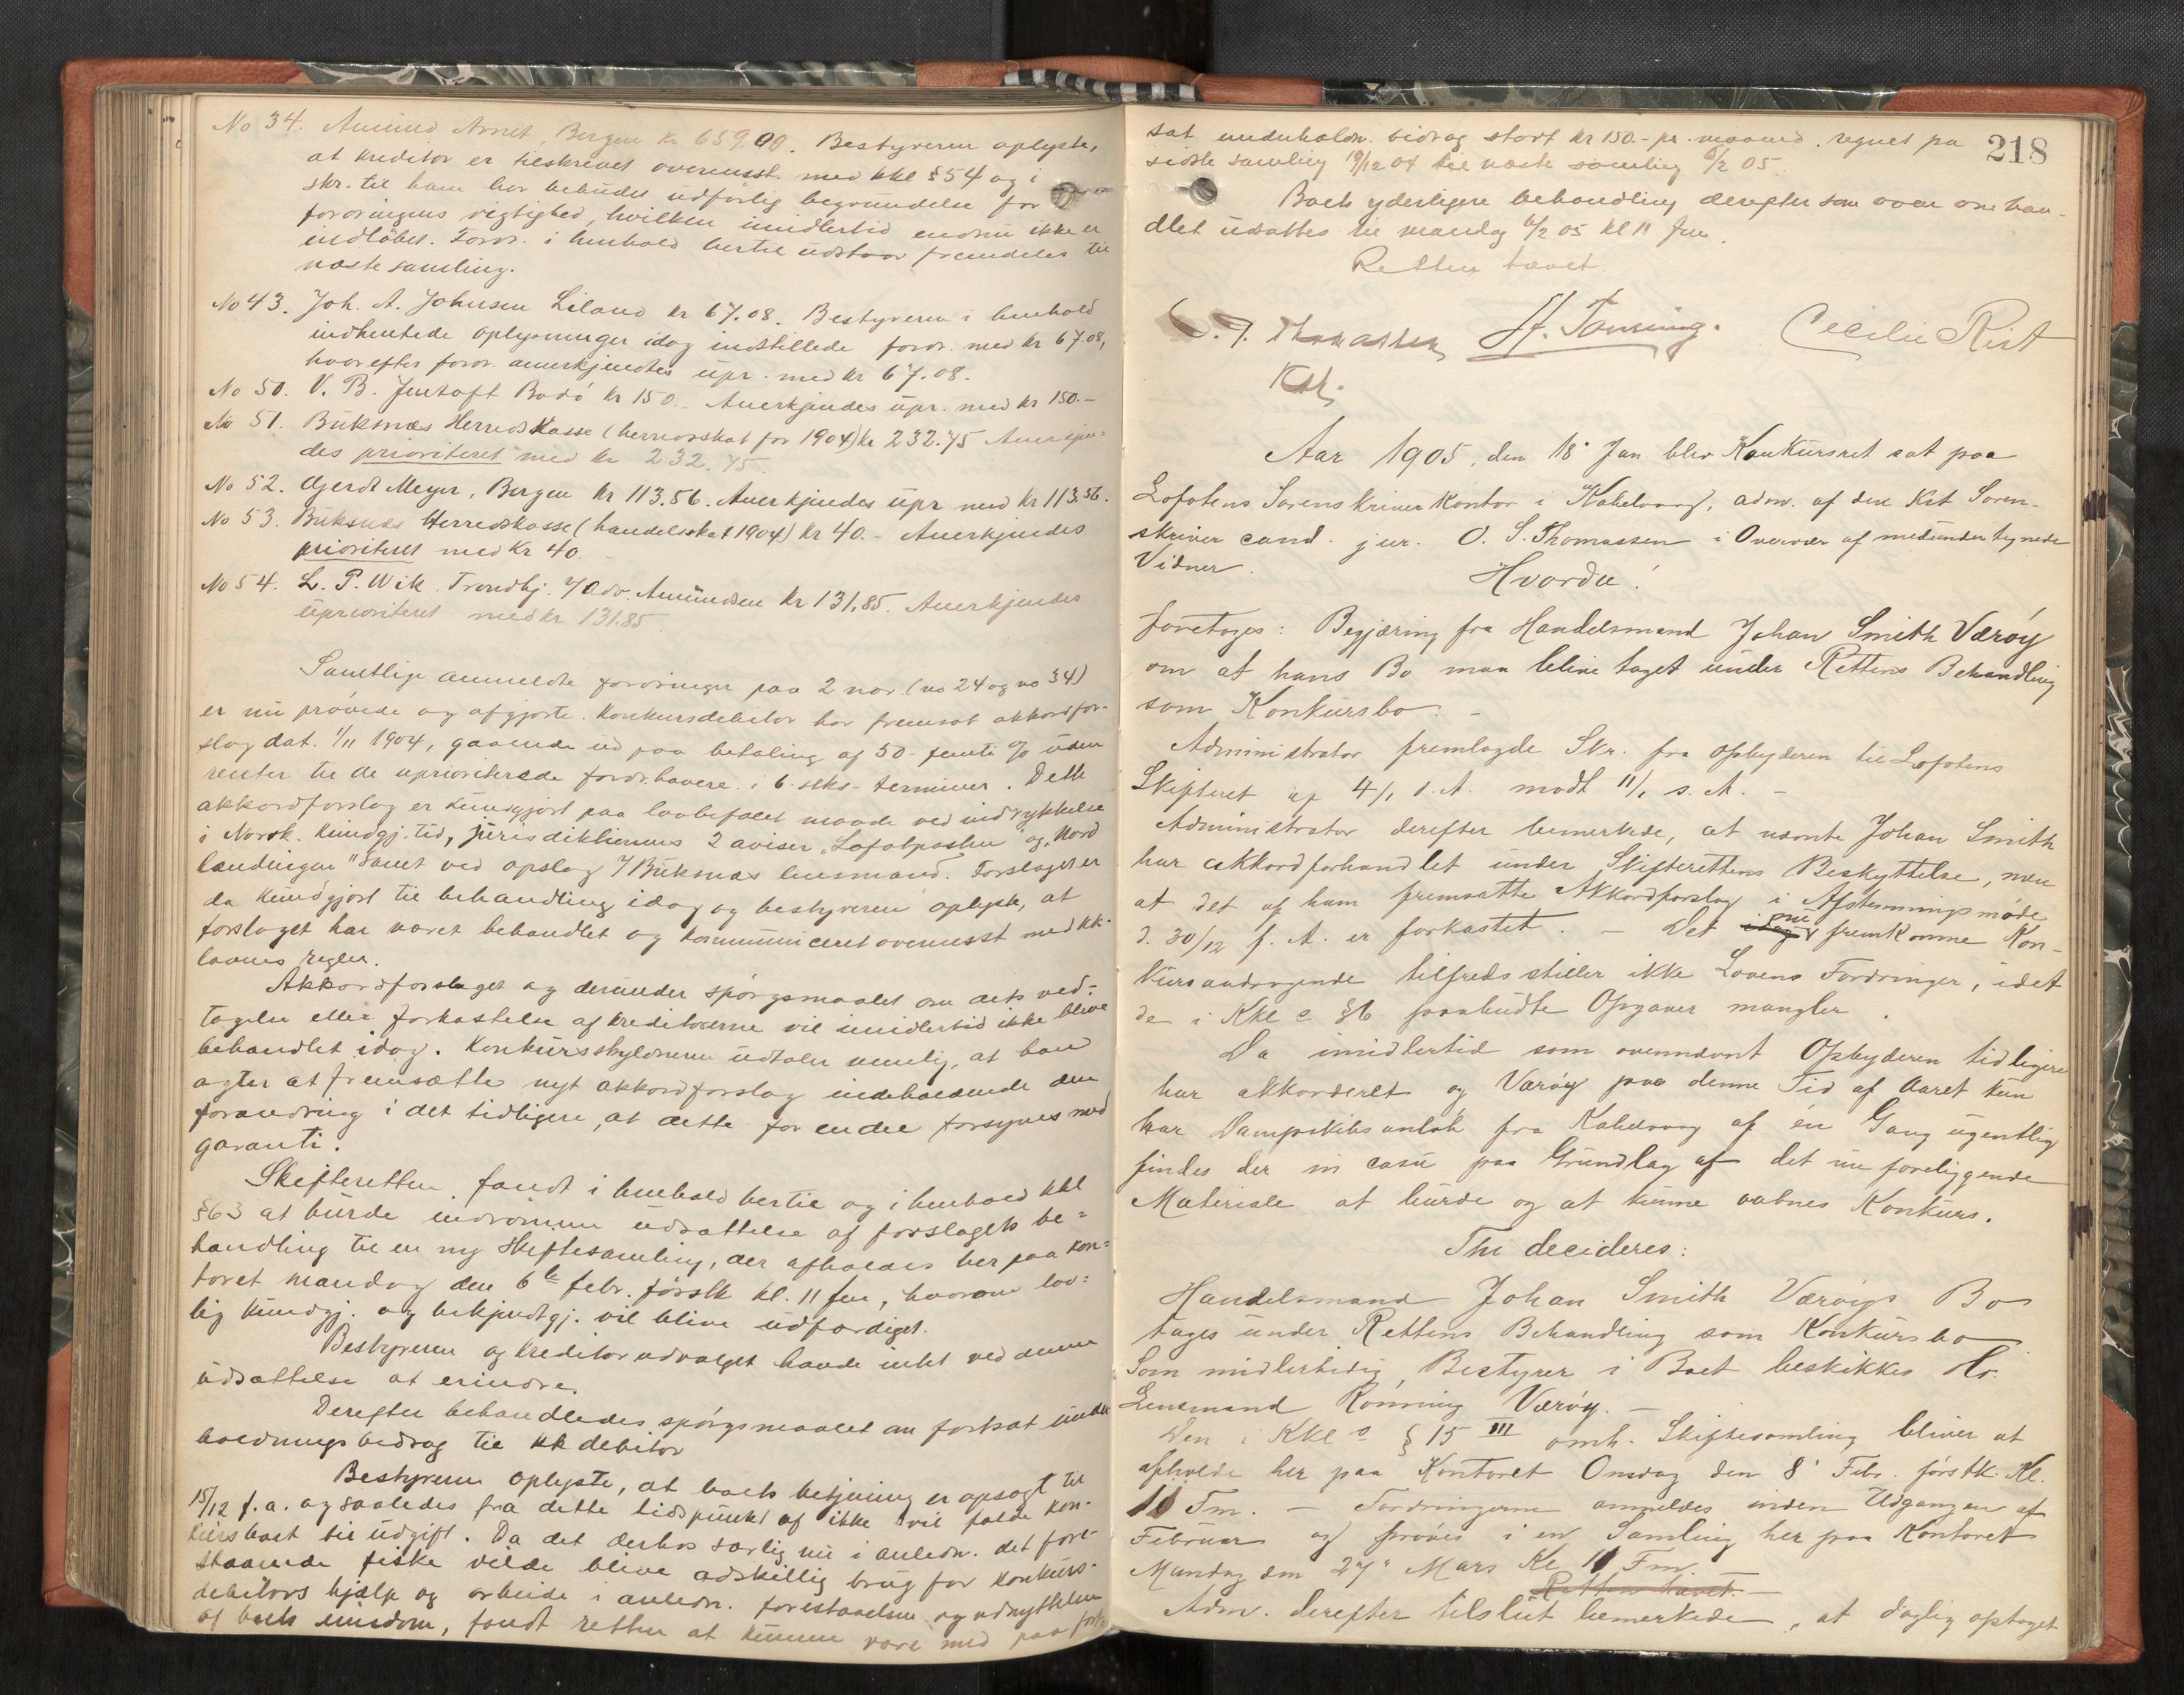 No 34. Amund Bergen kr 659.00. Bestyreren oplyste,
at kreditor er tilskrevet overensst. med kkl § 54 og i
skr. til ham har bebudet udførlig begrundelse for
fordringens rigtighed, hvilken imidlertid endnu ikke er
indløbet. Fordr. i henhold hertil udstaar fremdeles til
næste samling.
No 43. Joh. A. Johnsen Liland kr 67.08. Bestyreren i henhold
indhentede oplysninger idag indstillede fordr. med kr 67.08,
hvorefter fordr. anerkjendtes upr. med kr 67.08.
No 50. V. B. Jentoft Bodö kr 150.- Anerkjendes upr. med kr 150.-
No 51. Buksnæs Herredskasse (herredsskat for 1904) kr 232.75 Anerkjen-
des prioriteret med kr 232.75.
No 52. Gerdt Meyer, Bergen kr 113.56. Anerkjendes upr med kr 113.56.
No 53. Buksnæs Herredskasse (handelsskat 1904) kr 40.- Anerkjendes
prioriteret med kr 40.-
No 54. L. P. Wik Trondhj. v/ adv. Amundsen kr 131.85. Anerkjendes
uprioriteret med kr 131.85.
Samtlige anmeldte fordringer paa 2 nær (no 24 og no 34)
er nu prövede og afgjorte. Konkursdebitor har fremsat akkordfor-
slag dat. 1/11 1904, gaaende ud paa betaling af 50 - femti % uden
renter til de uprioriterede fordr.havere i 6 - seks - terminer. Dette
akkordforslag er kundgjort paa lovbefalet maade ved indrykkelse
i Norsk. Kundgj.tid, jurisdiktionens 2 aviser "Lofotposten" og "Nord
lændingen" samt ved opslag v/ Buksnæs lensmand. Forslaget er
da kundgjort til behandling idag og bestyreren oplyste, at
forslaget har været behandlet og kommuniceret overensst. med kk-
lovens regler.
Akkordforslaget og derunder spørgsmaalet om dets ved-
tagelse eller forkastelse af kreditorerne vil imidlertid ikke blive
behandlet idag. Konkursskyldneren udtaler nemlig, at han
agter at fremsætte nyt akkordforslag indeholdende den
forandring i det tidligere, at dette for en del forsynes med
garanti.
Skifteretten fandt i henhold hertil og i henhold kkl
§ 63 at burde indrömme udsættelse af forslagets be-
handling til en ny skiftesamling, der afholdes her paa kon-
toret mandag den 6te febr. førstk kl. 11 fm, hvorom lov-
lig kundgj. og bekjendtgj. vil blive udfærdiget.
Bestyreren og kreditorudvalget havde intet ved denne
udsættelse at erindre.
Derefter behandledes spørgsmaalet om fortsat under
holdningsbidrag til kk debitor
Bestyreren oplyste, at boets betjening er opsagt til
15/12 f.a. og saaledes fra dette tidspunkt af ikke vil falde kon-
kursboet til udgift. Da det derhos særlig nu i anledn. det fore-
staaende fiske vilde blive adskillig brug for konkurs-
debitors hjælp og arbeide i anledn. forestaaelsen og udnyttelsen
af boets eiendom, fandt retten at kunne være med paa fort-
218
sat underholdn. bidrag stort kr 150.- pr. maaned, regnet fra
sidste samling 19/12 04 til næste samling 6/2 05.
Boets yderligere behandling derefter som oven om han-
dlet udsattes til mandag 6/2 05 kl 11 fm.
Retten hævet.
O. S. Thomassen H. Cecilie Rist
Kst.
Aar 1905, den 18' Jan. blev Konkursret sat paa
Lofotens Sorenskriverkontor i Kabelvaag, adm. af den Kst Soren-
skriver cand. jur. O. S. Thomassen i Overvær af medundertegnede
Vidner.
Hvorda!
foretoges: Begjæring fra Handelsmand Johan Smith Værøy
om at hans Bo maa blive taget under Rettens Behandling
som Konkursbo. -
Administrator fremlagde Skr. fra Opbyderen til Lofotens
Skifteret af 4/1 d. A. modt 11/1 s. A. -
Administrator derefter bemerkede, at nævnte Johan Smith
har akkordforhandlet under Skifterettens Beskyttelse, men
at det af ham fremsatte Akkordforslag i Afstemningsmøde
d. 30/12 f. A. er forkastet. - Det idag nu fremkomne Kon-
kursandragende tilfredsstiller ikke Lovens Fordringer, idet
de i Kkl s § 6 paabudte Opgaver mangler.
Da imidlertid som ovennævnt Opbyderen tidligere
har akkorderet og Værøy paa denne Tid af Aaret kun
har Dampskibsanløb fra Kabelvaag af én Gang ugentlig
findes der in casu paa Grundlag af det nu foreliggende
Materiale at burde og at kunne aabnes Konkurs.
Thi decideres:
Handelsmand Johan Smith Værøys Bo
tages under Rettens Behandling som Konkursbo
Som midlertidig Bestyrer i Boet beskikkes Hr.
Lensmand Rönning Værøy. -
Den i Kkl s § 15 III omh. Skiftesamling bliver at
afholde her paa Kontoret Onsdag den 8' Febr. førstk. Kl.
11 Fm. - Fordringerne anmeldes inden Udgangen af
Februar og prøves i en Samling her paa Kontoret
Mandag den 27' Mars Kl. 11 Fm.
Retten hævet. -
Adm. derefter tilslut bemerkede, at daglig optaget